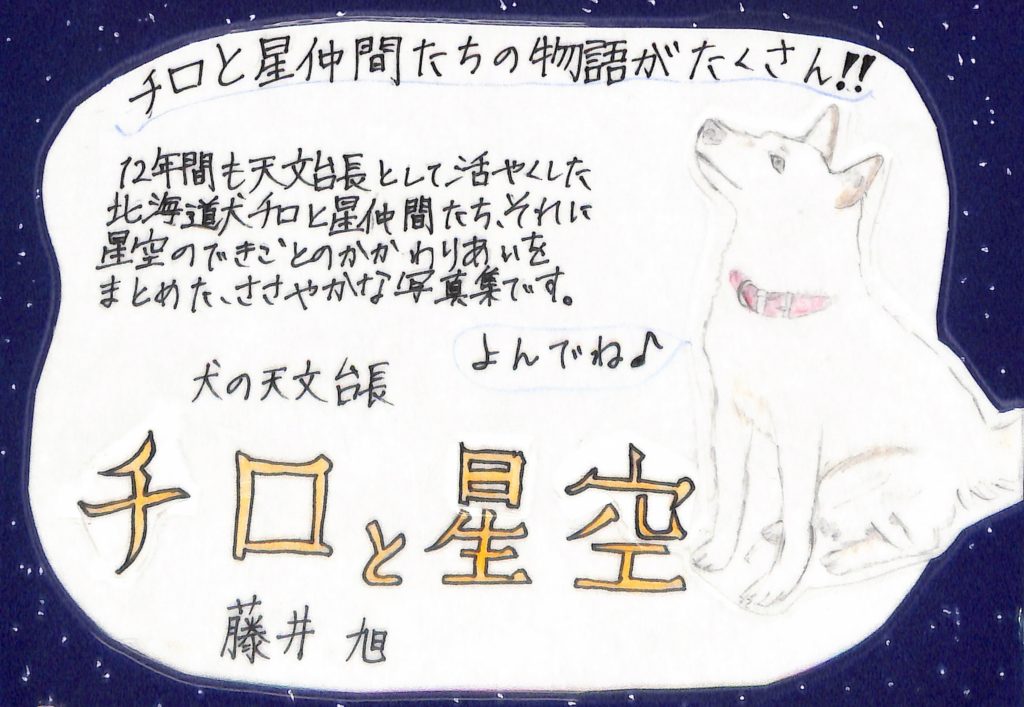 チロと星仲間たちの物語がたくさん!!
12年間も天文台長として活やくした
北海道犬チロと星仲間たち、それに
星空のできごとのかかわりあいを
まとめた、ささやかな写真集です。
よんでね♪
犬の天文台長
チロと星空
藤井 旭